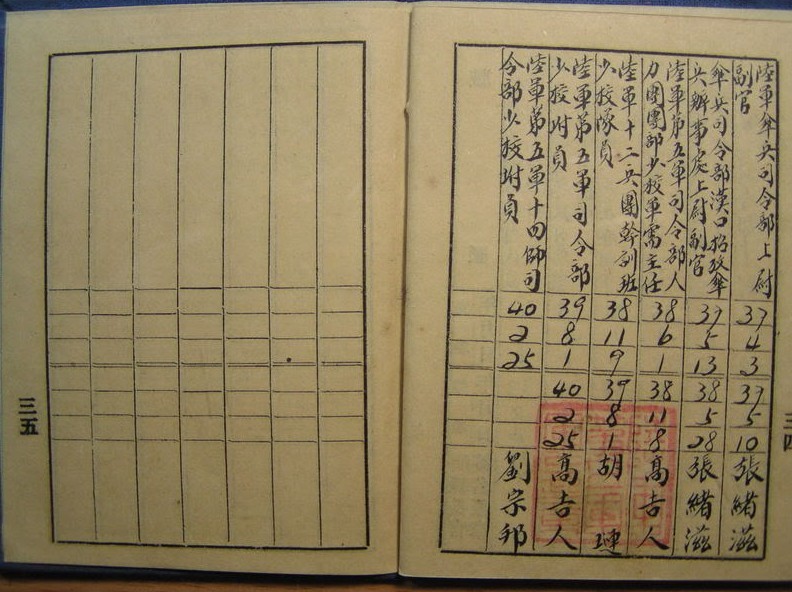 陸軍傘兵司令部上尉
副官
37
4
3
37
5
10
張緒滋
傘兵司令部漢口招攷傘
兵辦事處上尉副官
37
5
13
38
5
28
張緒滋
陸軍第五軍司令部人
力團團部少校軍需主任
38
6
1
38
11
8
高吉人
陸軍十二兵團幹訓班
少校隊員
38
11
9
39
8
1
胡璉
陸軍第五軍司令部
少校附員
39
8
1
40
2
25
高吉人
陸軍第五軍十四師司
令部少校附員
40
2
25
劉宗邦
三四
三五